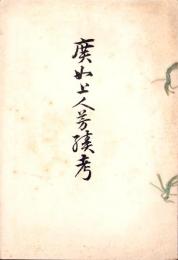 廣如上人芳績考